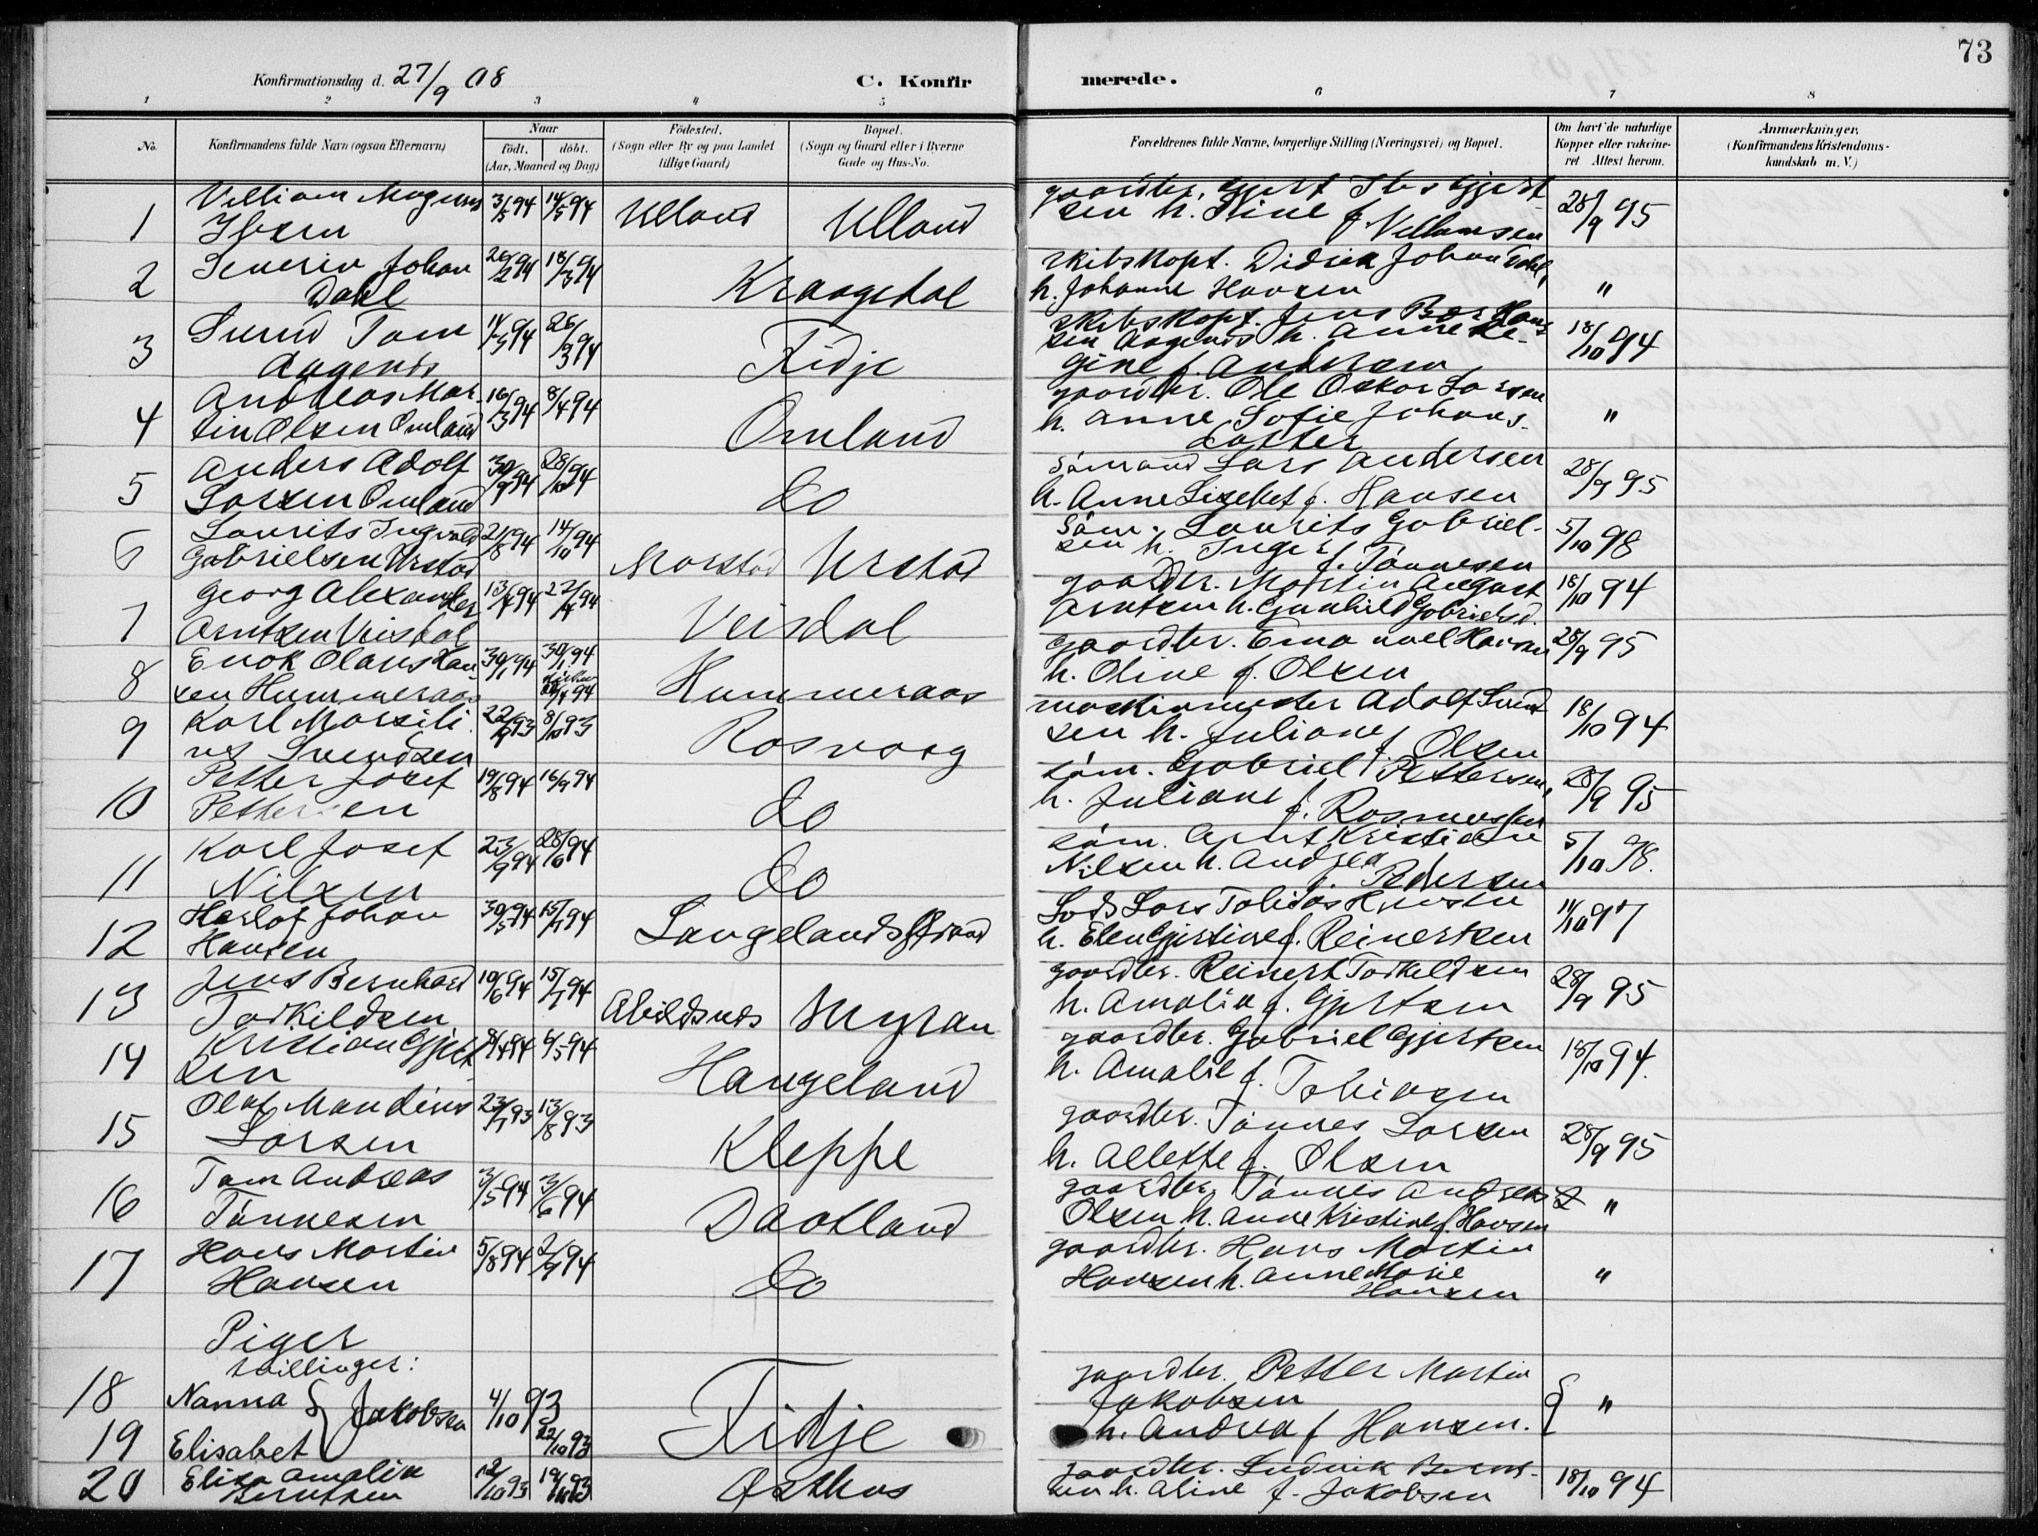 73
Konfirmationsdag d. 27/9 08
C. Konfirmerede.
1 2 3 4 5 6 7 8
No.
Konfirmandens fulde Navn (ogsaa Efternavn)
Naar
födt. döbt.
(Aar, Maaned og Dag)
Födested.
(Sogn eller By og paa Landet
tillige Gaard)
Bopæl.
(Sogn og Gaard eller i Byerne
Gade og Hus-No.
Forældrenes fulde Navne, borgerlige Stilling (Næringsvei) og Bopæl.
Om havt de naturlige
Kopper eller vakcine-
ret Attest herom.
Anmærkninger.
(Konfirmandens Kristendoms-
kundskab m. V.)
1 Villiam Magnus
Ibsen
14/5 94 Ulland Ulland
gaardbr.
sen h. Stine f. Villumsen 28/9 95
2 Severin Johan
Dahl
18/3 94 Kraagedal
skibskapt. Didrik Johan Dahl,
h. Johanne Hansen "
3 Svend Tom
Aagenæs
14/3 94 26/3 94 Fidje
skibskapt. Jens Hans
sen Aagenæs h. Anne Re-
gine f. Andersen 18/10 94
4 Andreas Mar-
tin Olsen Omland
16/3 94 8/4 94 Omland
gaardbr. Ole Oskar Larsen
h. Anne Sofie Johans-
datter "
5 Anders Adolf
Larsen Omland
30/9 94 28/10 94 do
sömand Lars Andersen
h. Anne Lisebet f. Hansen 28/9 95
6 Laurits Ingvald
Gabrielsen Urstad
21/8 94 14/10 94 Urstad
söm. Laurits Gabriel-
sen h. Inger f. Tönnesen 5/10 98
7 Georg Alexander
Arntsen Veisdal
13/4 94 22/4 94 Veisdal
gaardbr. Martin August
Arntsen h. Gunhild Gabrielsd. 18/10 94
8 Enok Olaus Han-
sen Hummeraas
30/1 94 30/1 94
Hummeraas
gaardbr. Emanuel Hansen
h. Oline f. Olsen 28/9 95
9 Karl Marsili-
us Svendsen
22/9 93 8/10 93 Rasvaag
maskinmester Adolf Svend
sen h. Juliane f. Olsen 18/10 94
10 Petter Josef
Pettersen
19/8 94 16/9 94 do
söm. Gabriel Pettersen,
h. Juliane f. Rasmussen 28/9 95
11 Karl Josef
Nilsen
23/9 94 28/10 94 do
söm. Arnt Kristian
Nilsen h. Andrea f. Pedersen 5/10 98.
12 Harlof Johan
Hansen
30/5 94 15/7 94 Langelandsstrand
Lods Lars Tobias Hansen
h. Elen Gjertine f. Reinertsen 11/10 97
13 Jens Bernhard
Torkildsen
10/6 94 15/7 94 Abildsnes Myran
gaardbr. Reinert Torkildsen
h. Amalia f. Gjertsen 28/9 95
14 Kristian Gjert
sen
8/4 94 6/5 94 Haugeland
gaardbr. Gabriel Gjertsen
h. Amalie f. Tobiasen 18/10 94.
15 Olaf Mandius
Larsen
23/7 93 13/8 93 Kleppe
gaardbr. Tönnes Larsen
h. Allette f. Olsen 28/9 95
16 Tom Andreas
Tönnesen
3/5 94 3/6 94 Daotland
gaardbr. Tönnes Andreas
Olsen h. Anne Kristine f. Hansen "
17 Hans Martin
Hansen
5/8 94 2/9 94 do
gaardbr. Hans Martin
Hansen h. Anne Marie
Hansen "
Piger
tvillinger:
18 Nanna } Jakobsen 4/10 93
19 Elisabet 22/10 93 Fidje
gaardbr. Petter Martin
Jakobsen
h. Andrea f Hansen. "
20 Elisa Amalia
Berntsen
12/10 93 Østhus
gaardbr. Ludvik Bernt-
sen h. Aline f. Jakobsen 18/10 94